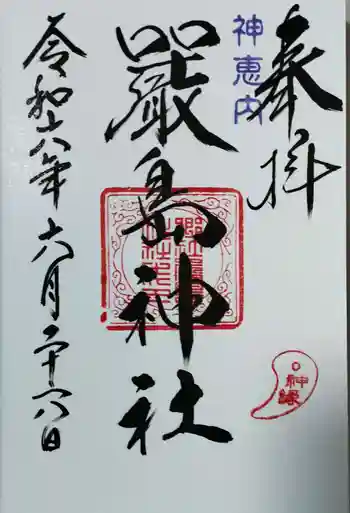 奉拝
神恵内
嚴島神社
令和六年六月二十八日
神縁